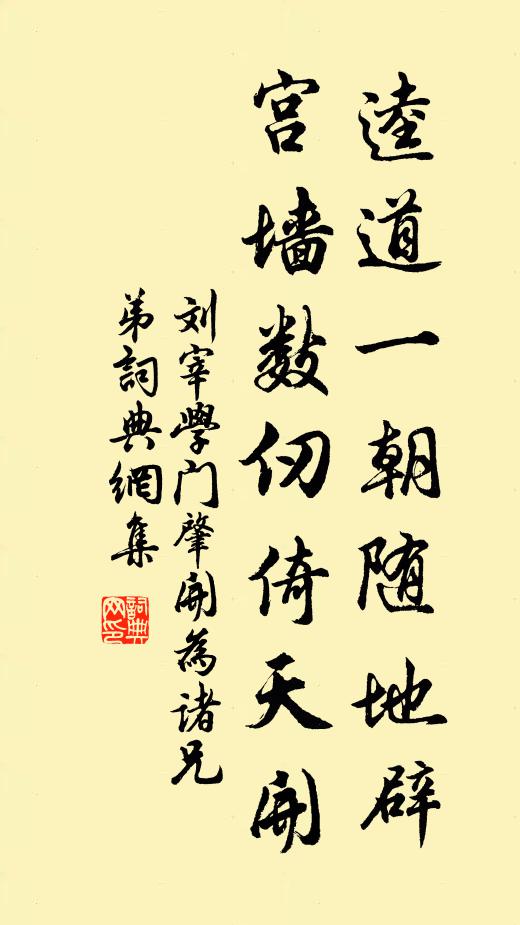 逵道一朝随地辟
宫墙数仞倚天開
刘宰學门肇開為诸兄
弟詞典網集
詞典网印